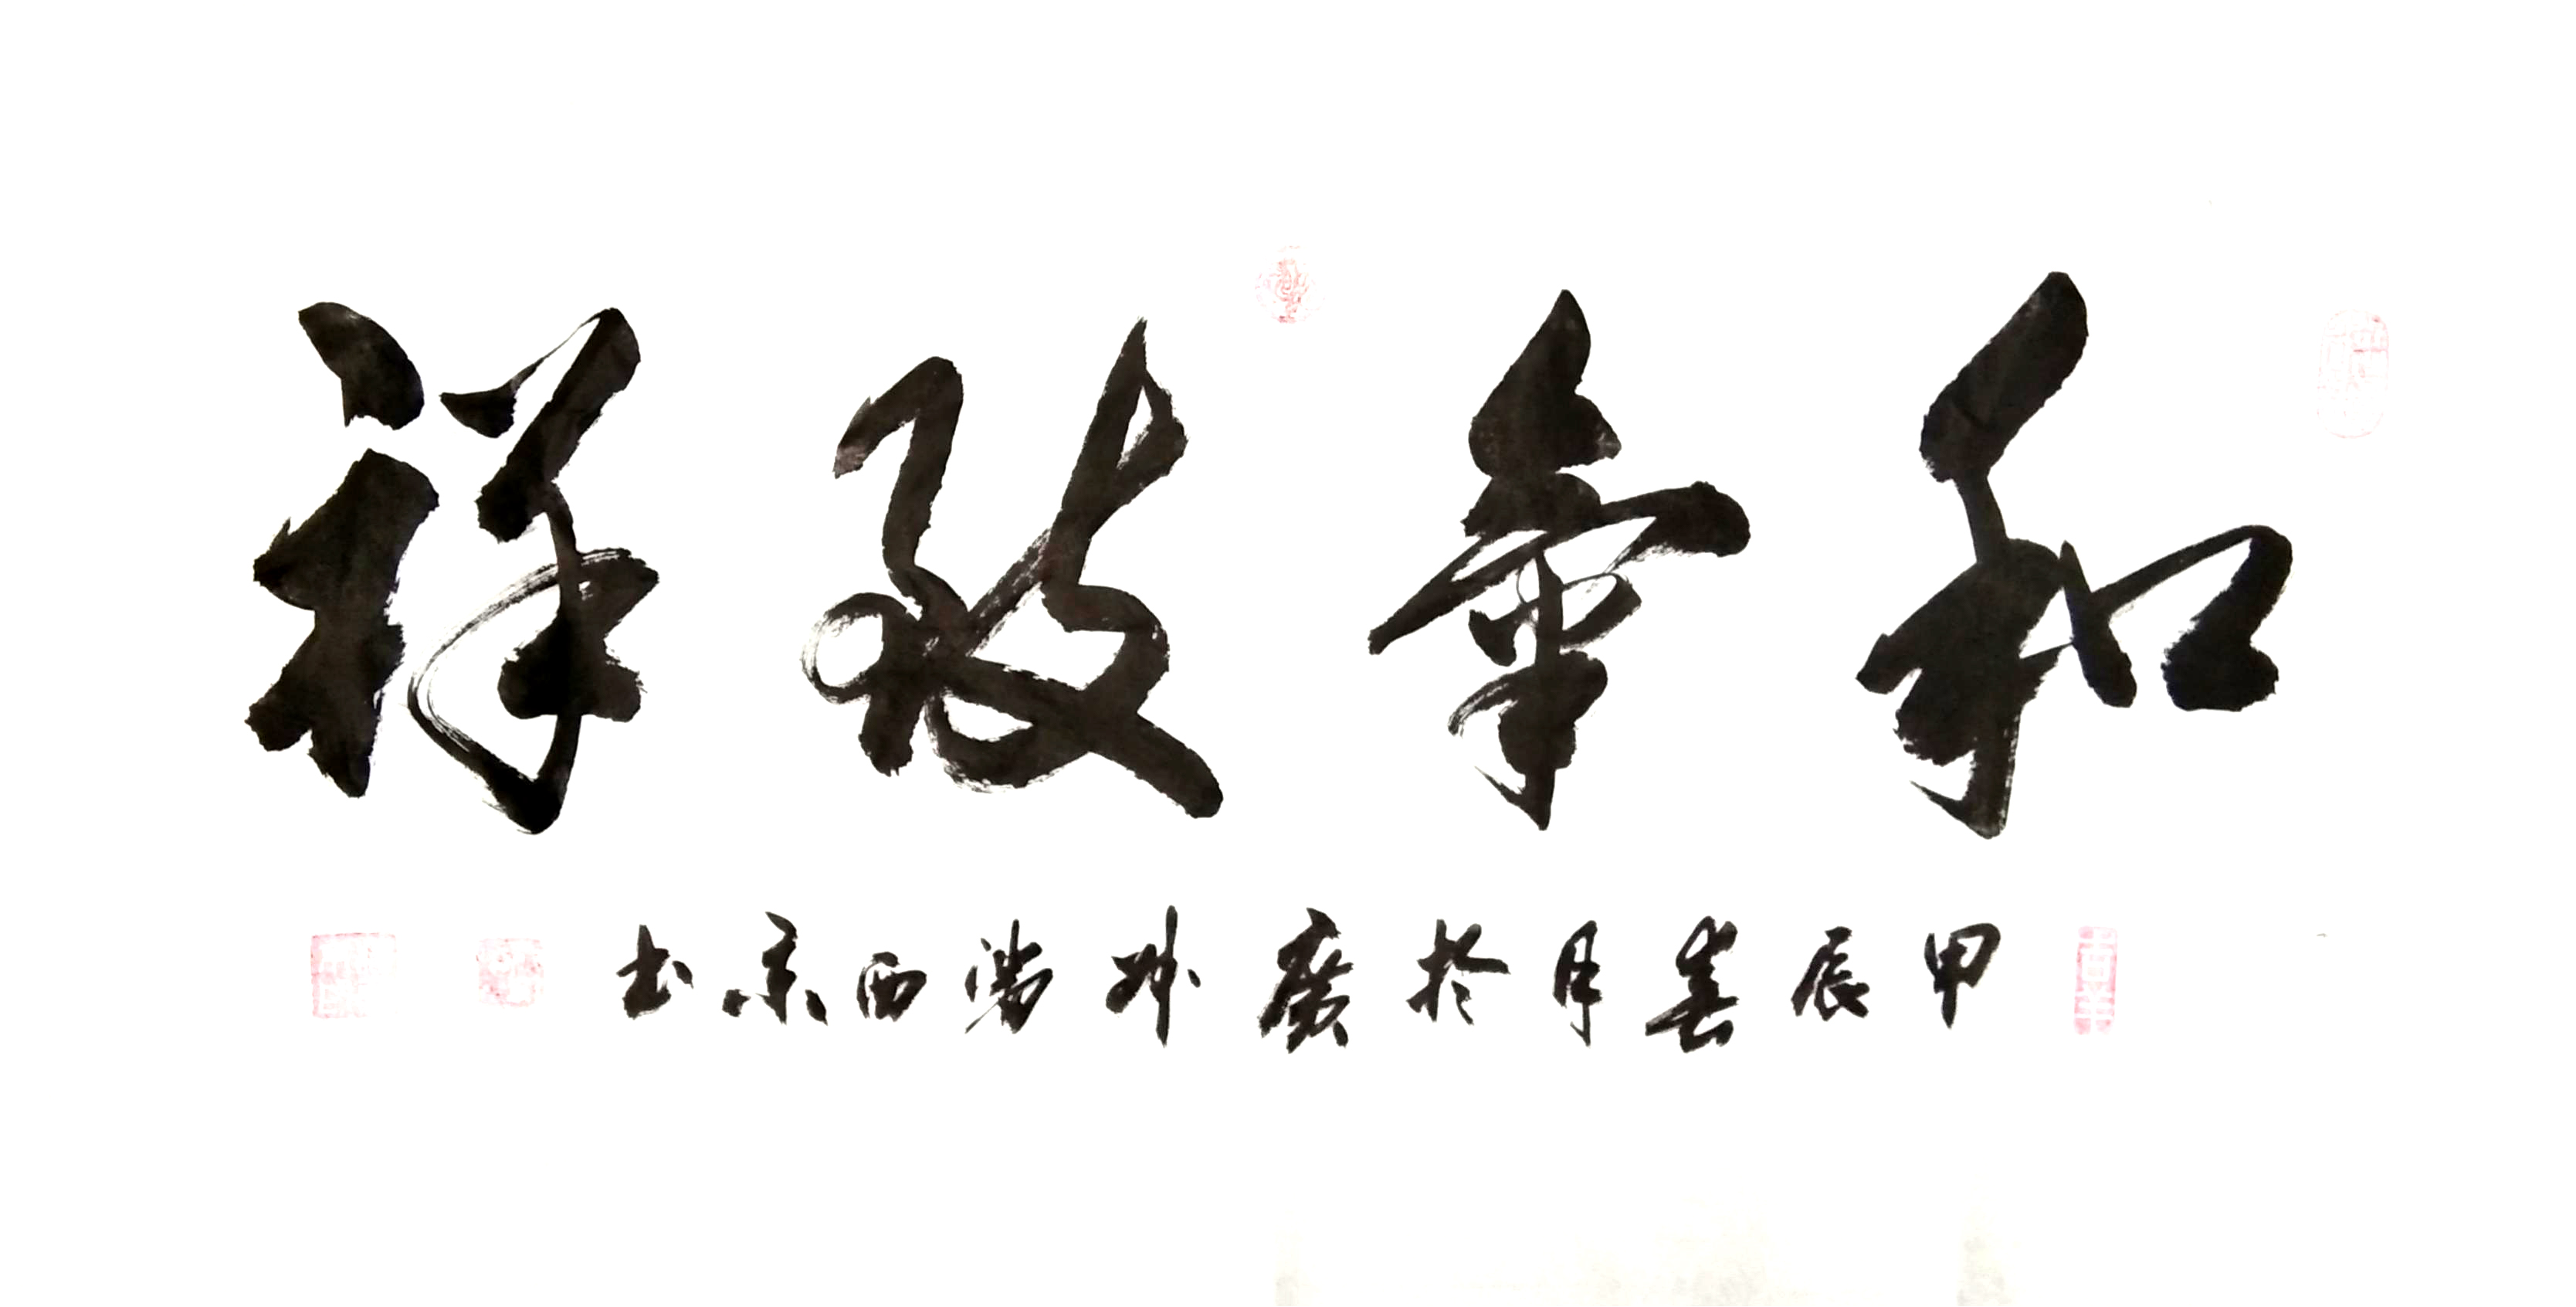 和氣致祥
甲辰春月於廣州灣西京书